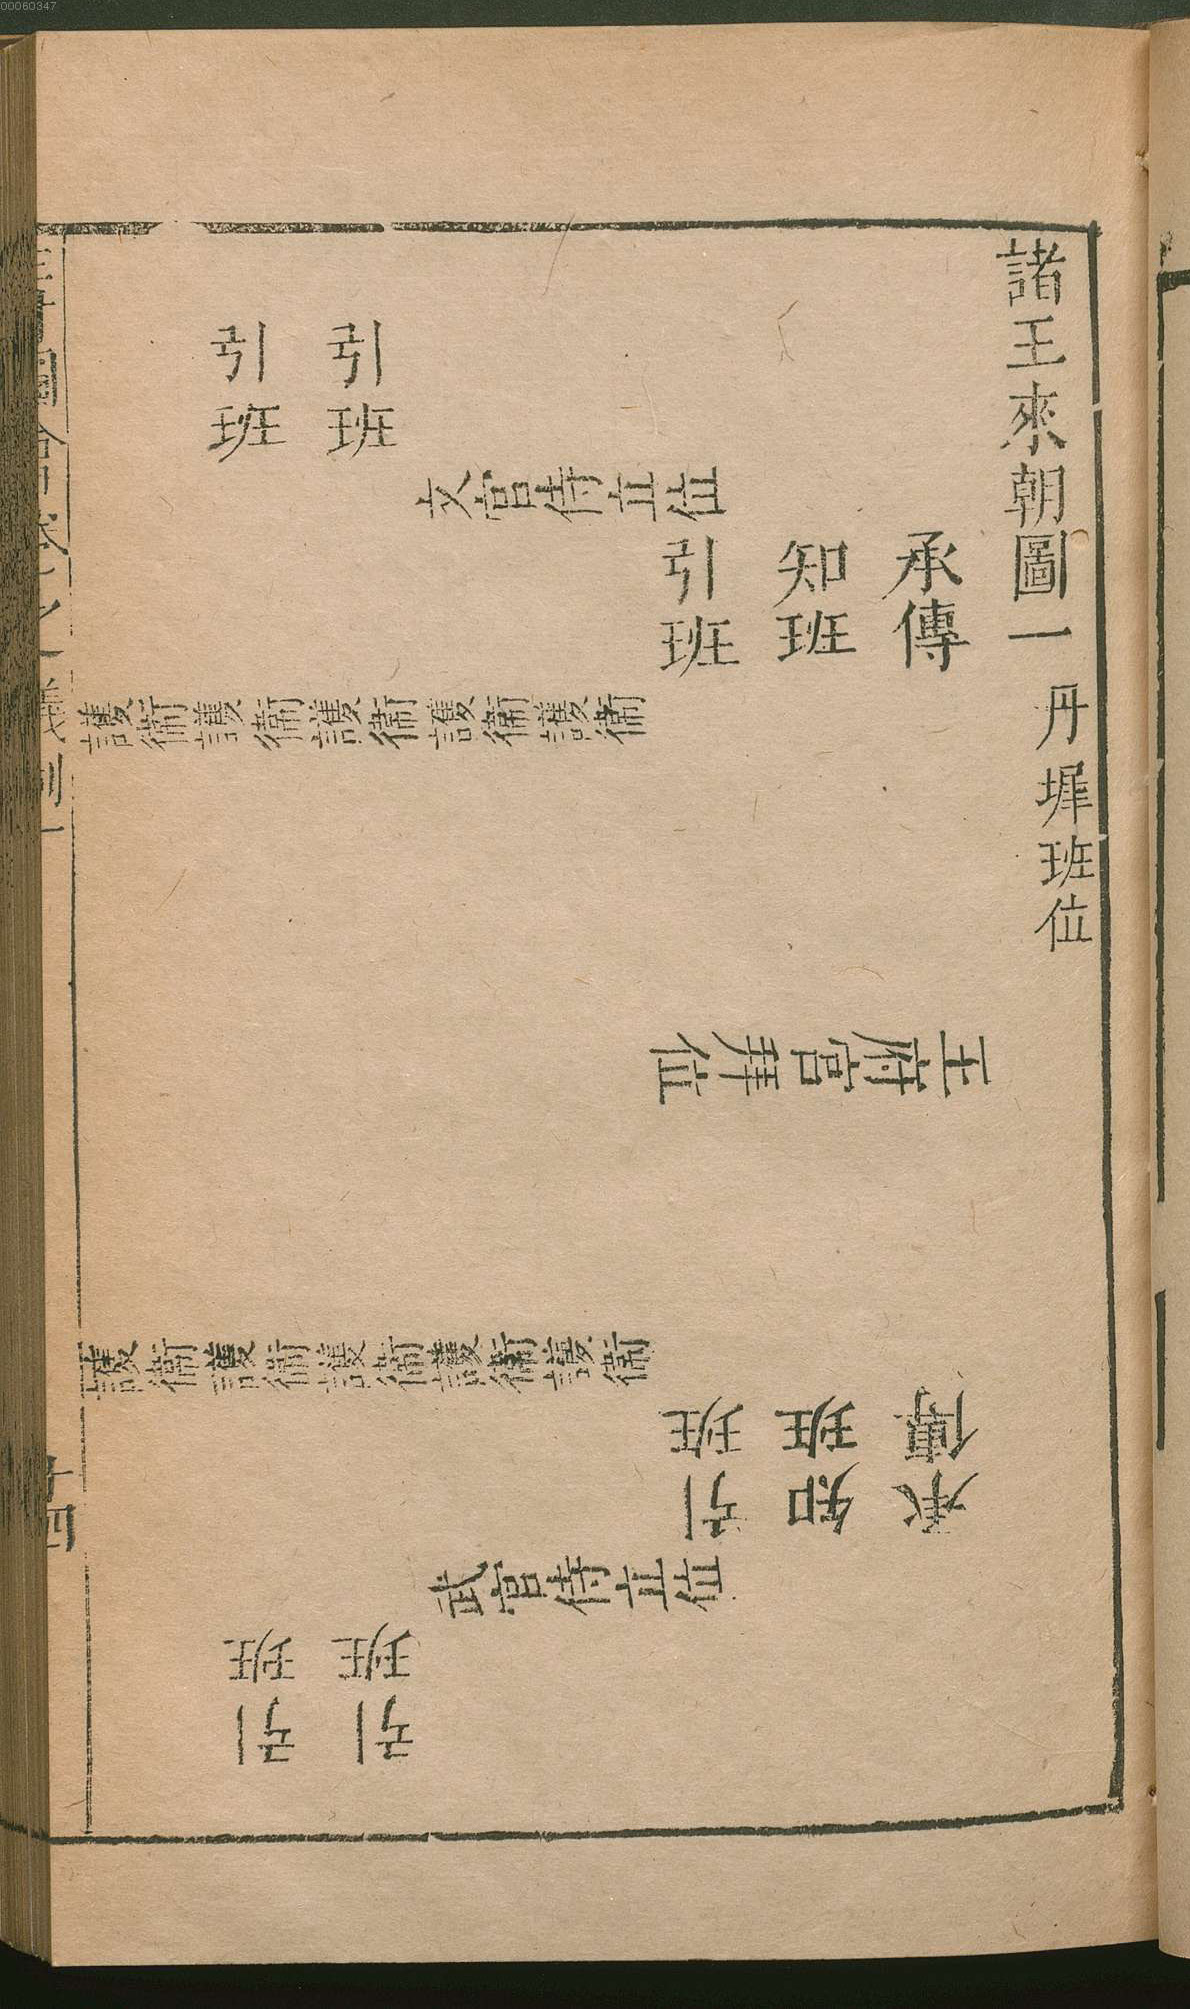 諸王來朝圖一 丹墀班位
承傳
知班
引班
文官侍立位
引班
引班
護衛護衛護衛護衛護衛
王府官拜位
護衛護衛護衛護衛護衛
承傳
知班
引班
武官侍立位
引班
引班
三才圖會
儀制一
十四
00060347